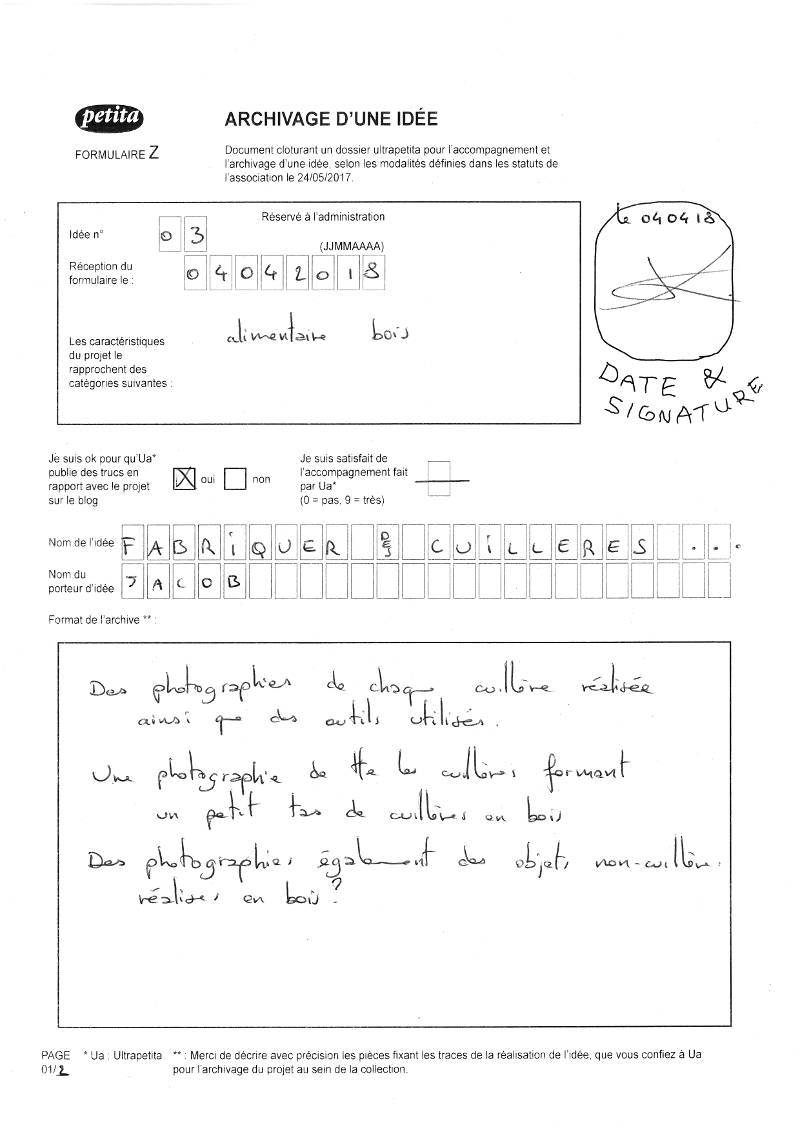 petita
ARCHIVAGE D'UNE IDÉE
FORMULAIRE Z
Document cloturant un dossier ultrapetita pour l'accompagnement et
l'archivage d'une idée, selon les modalités définies dans les statuts de
l'association le 24/05/2017.
Réservé à l'administration
Idée n° 03
(JJMMAAAA)
Réception du
formulaire le : 04042018
Les caractéristiques
du projet le
rapprochent des
catégories suivantes :
alimentaire bois
le 040418
DATE &
SIGNATURE
Je suis ok pour qu'Ua*
publie des trucs en
rapport avec le projet
sur le blog
X oui non
Je suis satisfait de
l'accompagnement fait
par Ua*
(0 = pas, 9 = très)
Nom de l'idée FABRiQUER DES CUiLLERES ...
Nom du
porteur d'idée JACOB
Format de l'archive ** :
Des photographies de chaque cuillère réalisée
ainsi que des outils utilisés.
Une photographie de tte les cuillères formant
un petit tas de cuillères en bois
Des photographies également des objets non-cuillères
réalisés en bois ?
PAGE
01/2
* Ua : Ultrapetita ** : Merci de décrire avec précision les pièces fixant les traces de la réalisation de l'idée, que vous confiez à Ua
pour l'archivage du projet au sein de la collection.